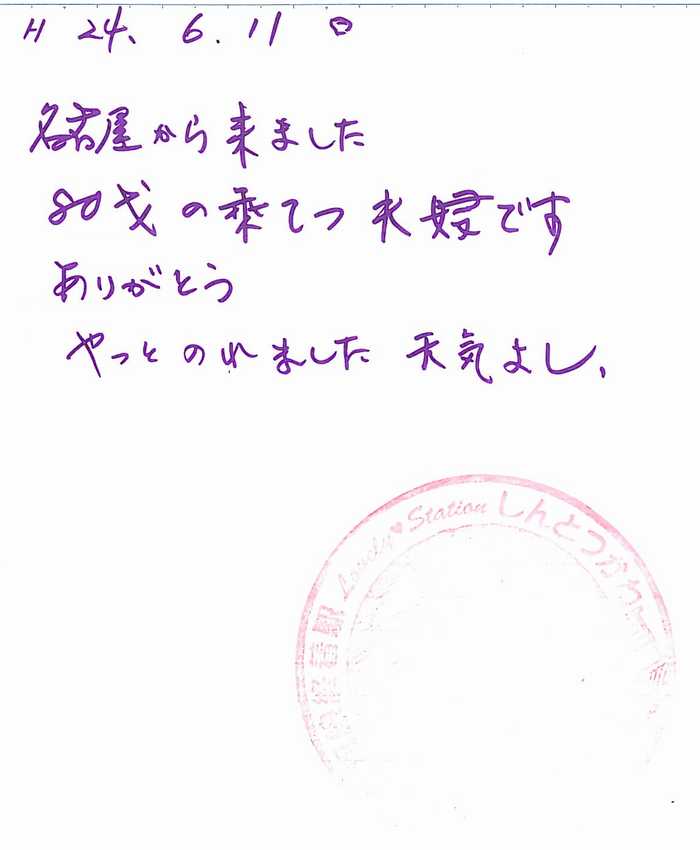 H 24. 6. 11
名古屋から来ました
80才の乗てつ夫婦です
ありがとう
やっとのれました 天気よし、
Lovely♥Station しんとつかわ